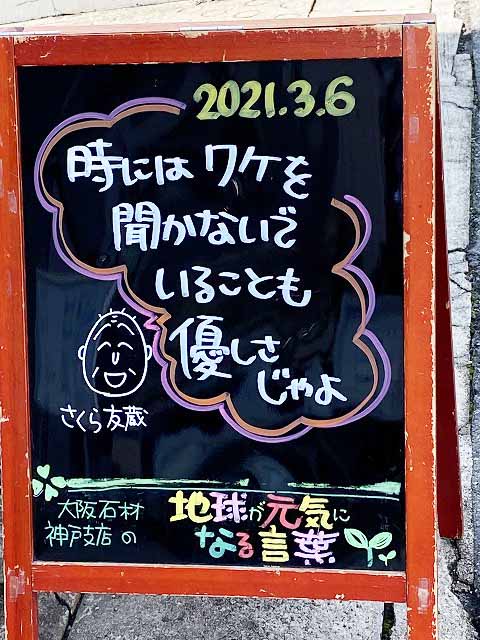 2021.3.6
時には ワケを
聞かないで
いることも
優しさ
じゃよ
さくら友蔵
大阪石材
神戸支店 の
地球が元気に
なる言葉